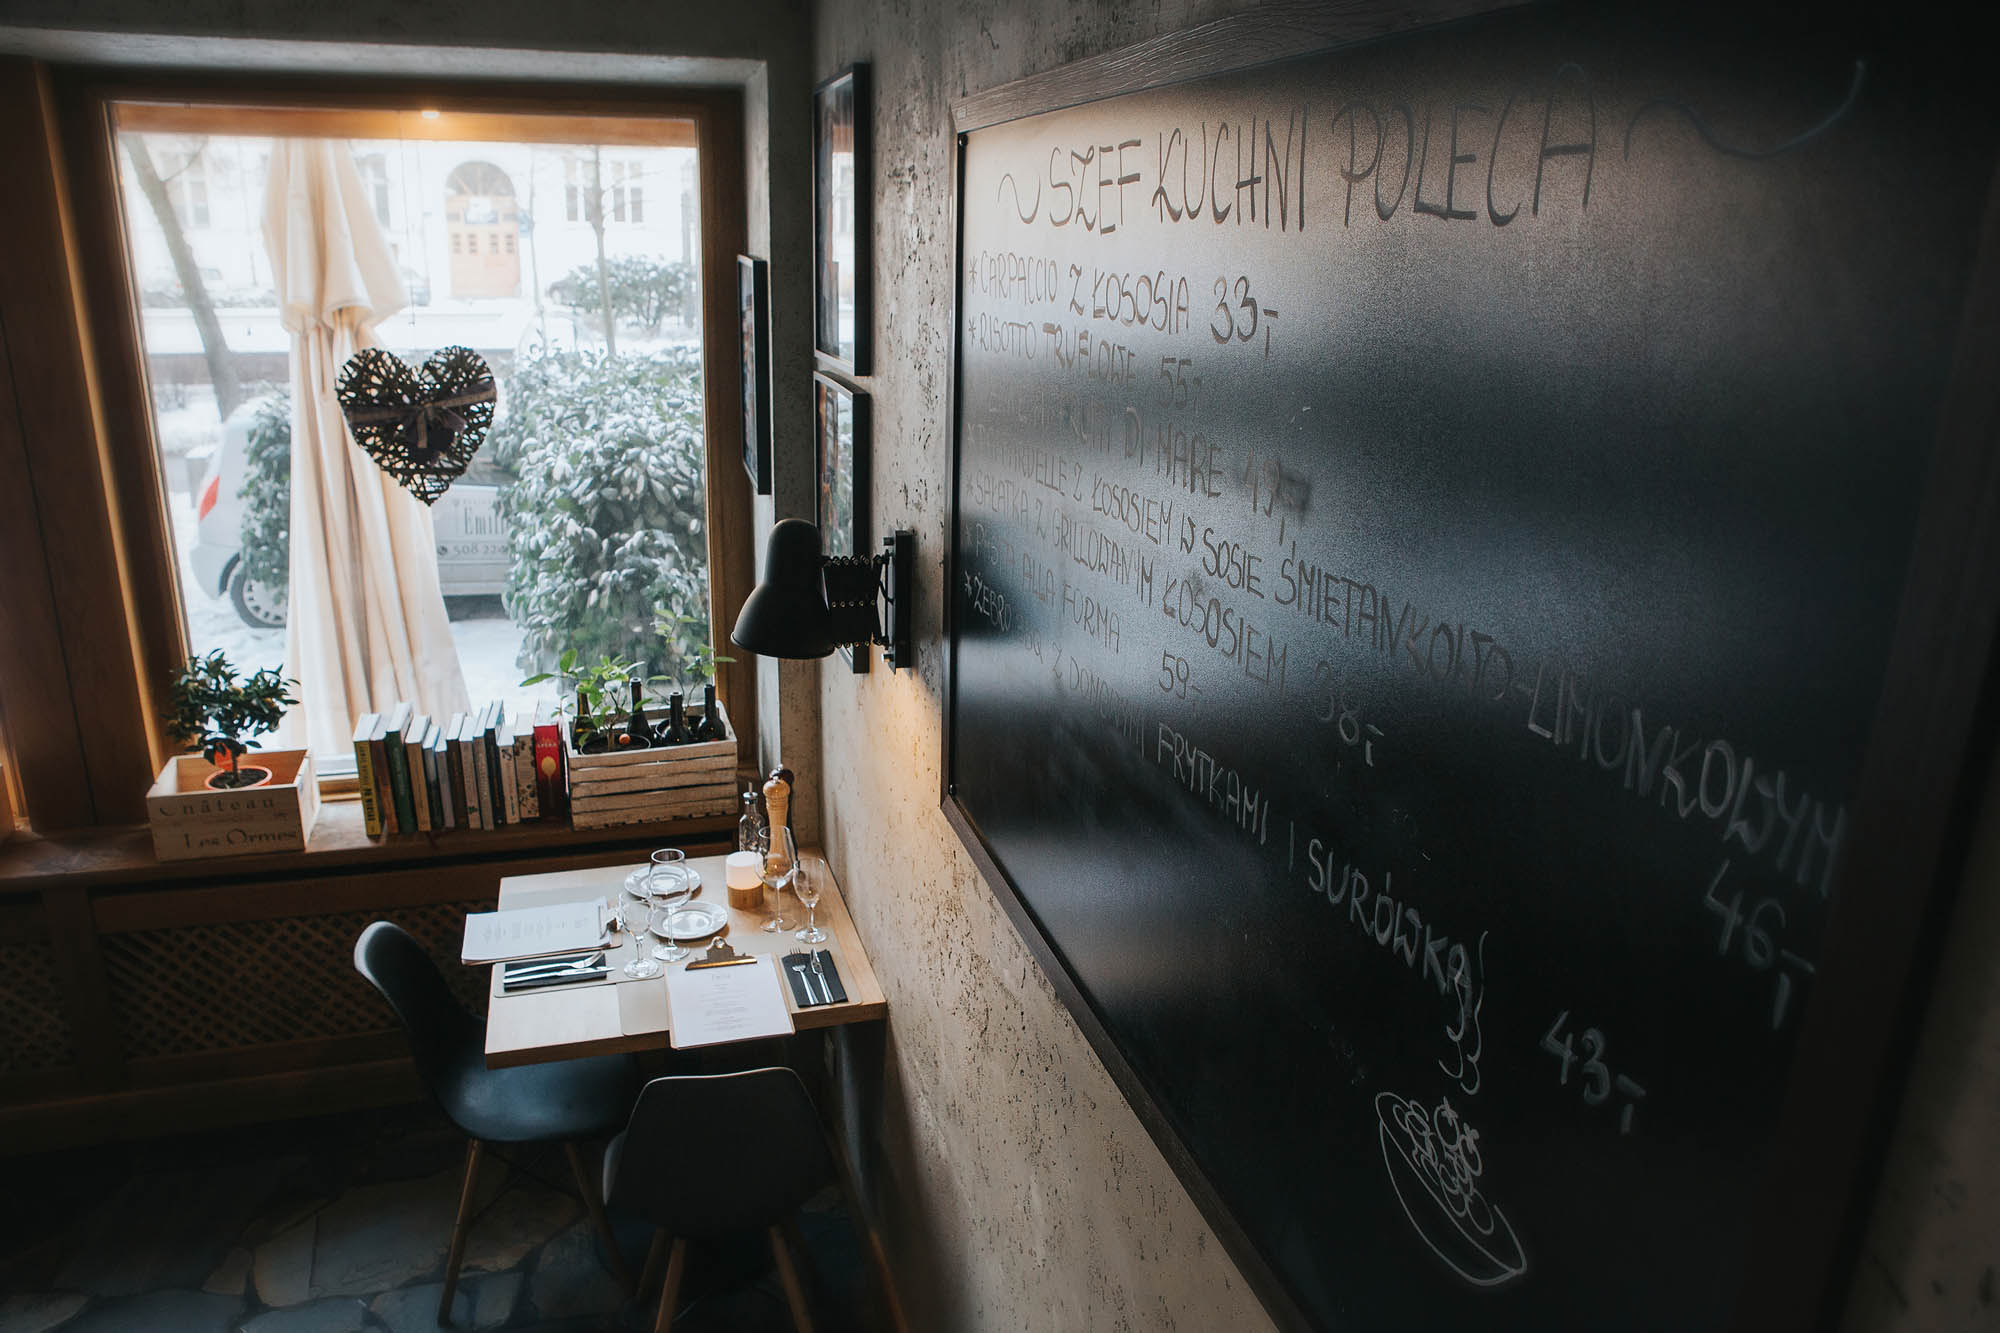 ~ SZEF KUCHNI POLECA ~
*CARPACCIO Z ŁOSOSIA 33,-
*RISOTTO TRUFLOWE 55,-
DI MARE 49,-
Z ŁOSOSIEM W SOSIE ŚMIETANKOWO-LIMONKOWYM 46,-
*SAŁATKA Z GRILLOWANYM ŁOSOSIEM 38,-
*PASTA ALLA FORMA 59,-
*ŻEBRO Z DOMOWYMI FRYTKAMI I SURÓWKĄ 43,-
Emil
508 224
Château
Les Ormes